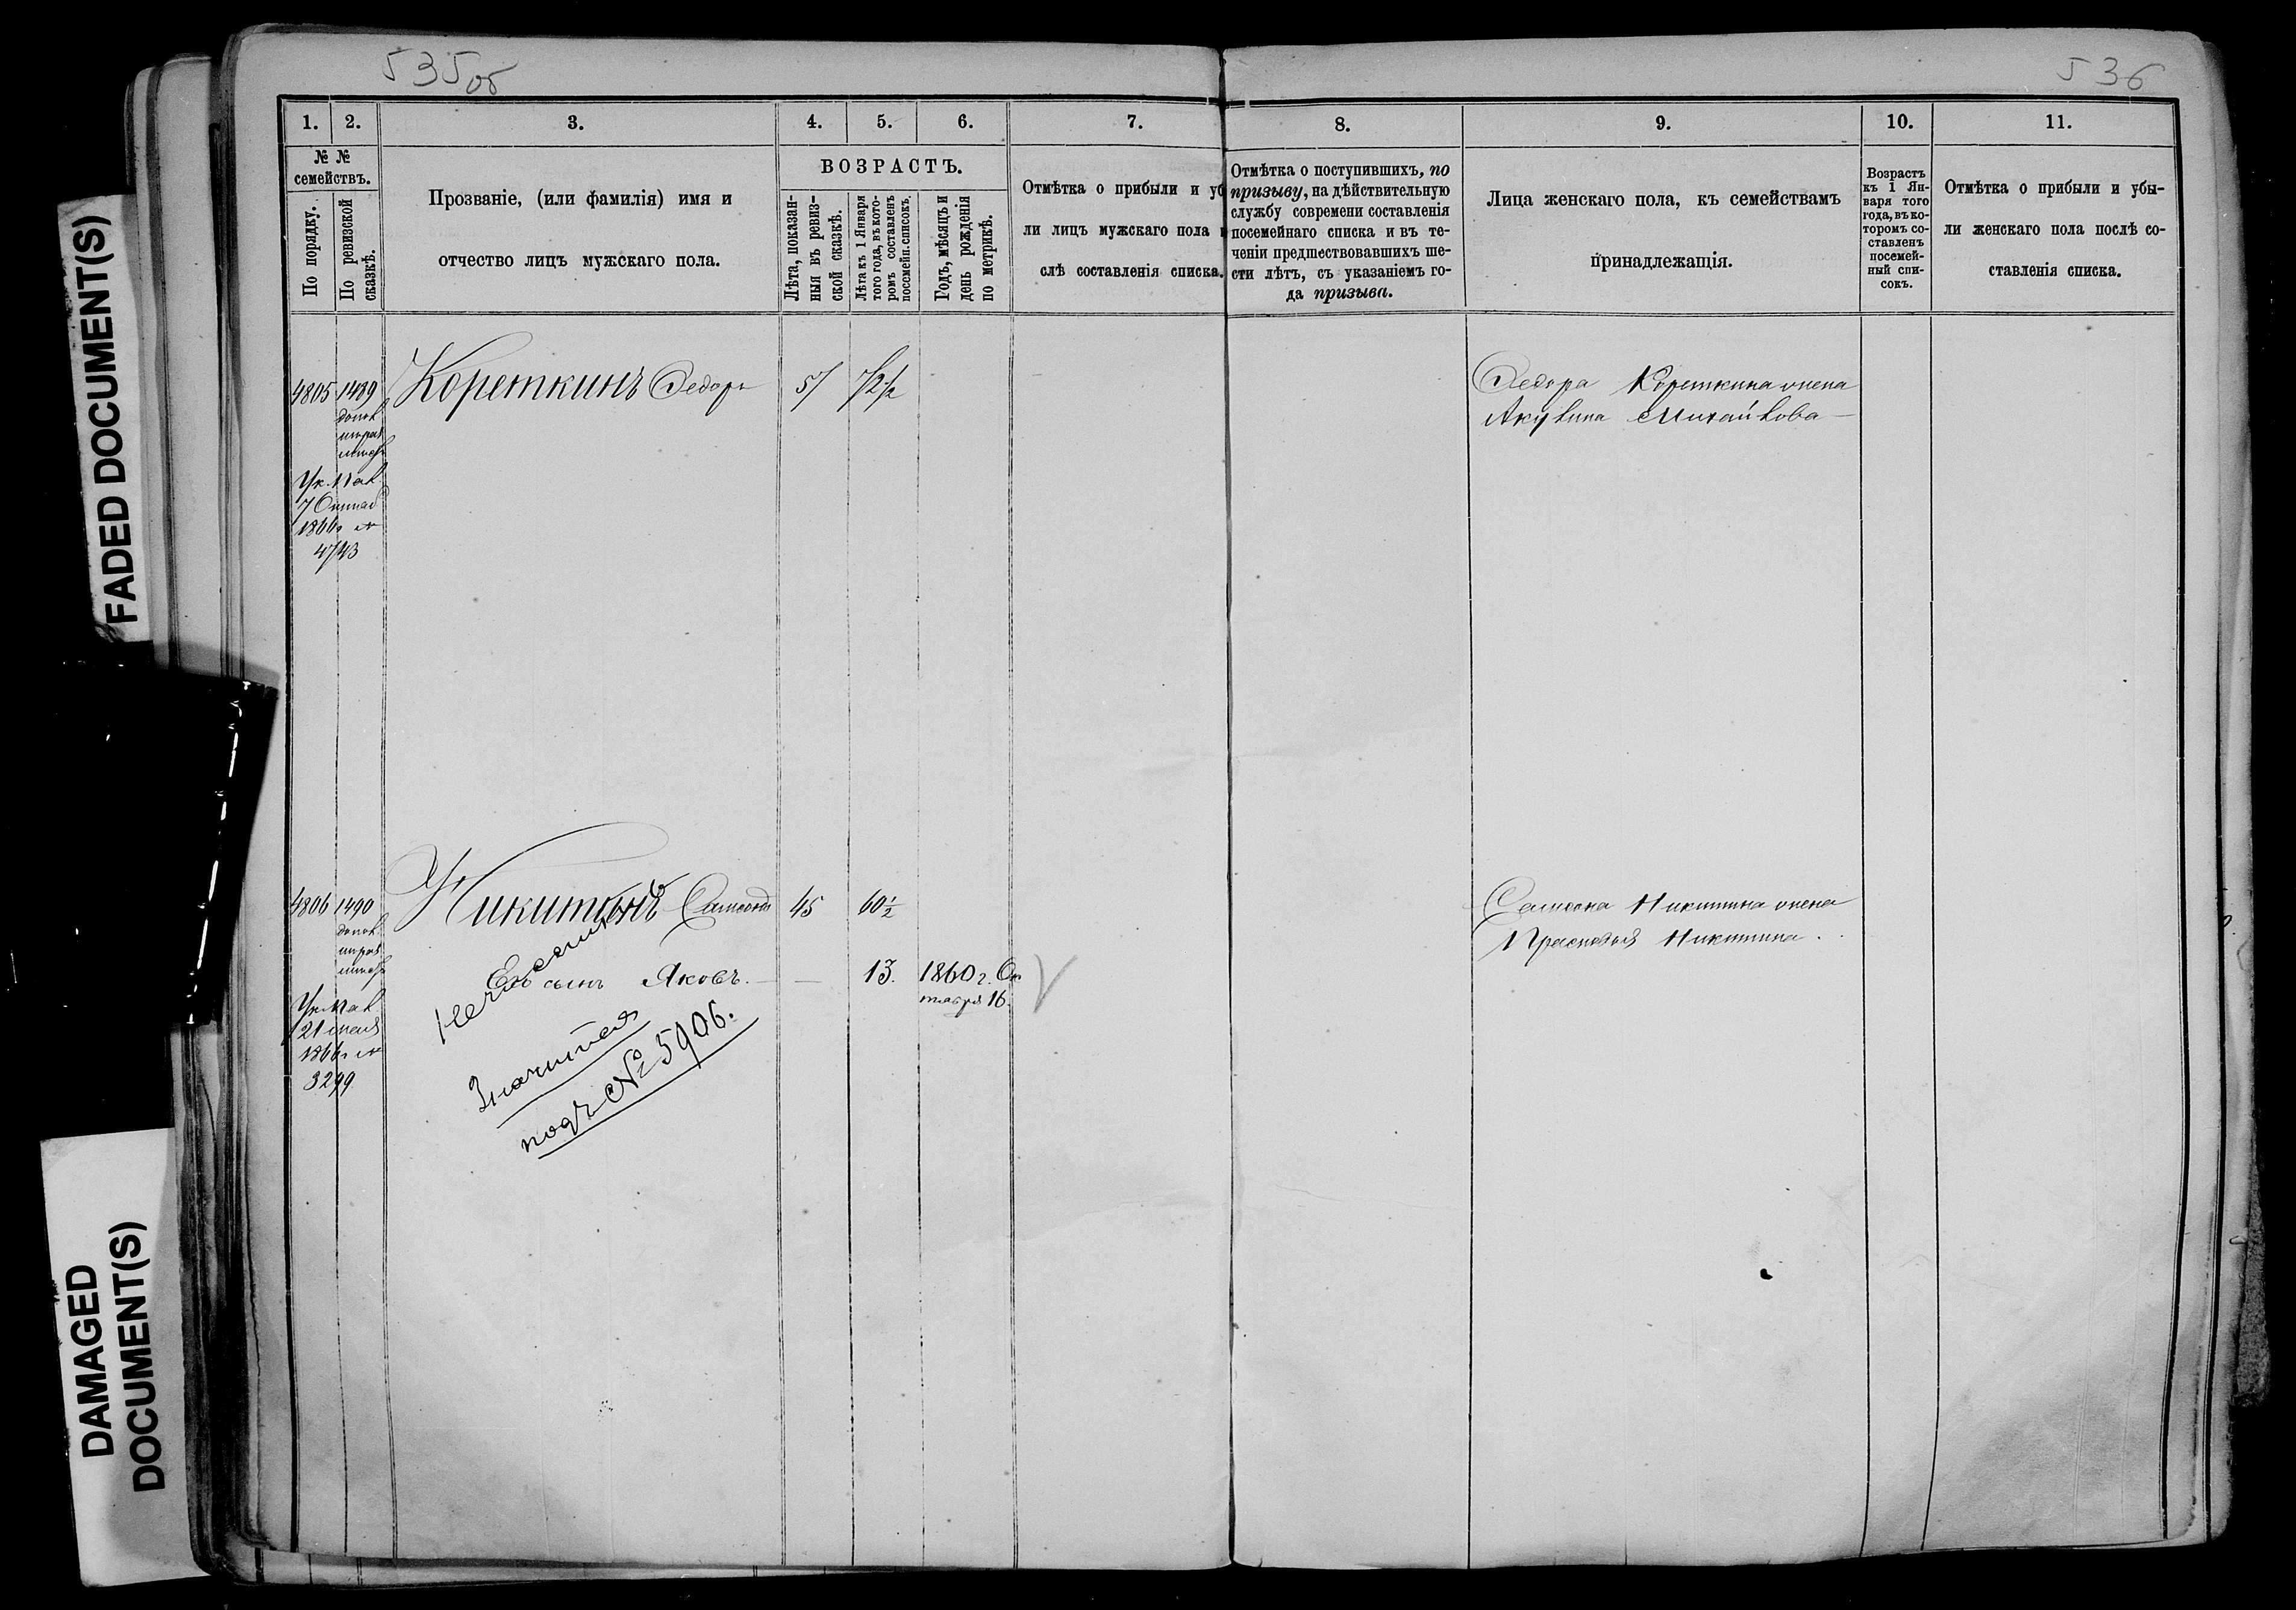 FADED DOCUMENT(S)
DAMAGED
DOCUMENT(S)
535об
536
1. 2. 3. 4. 5. 6. 7. 8. 9. 10. 11.
№ №
семействъ.
По порядку.
По ревизской
сказкѣ.
Прозваніе, (или фамилія) имя и
отчество лицъ мужскаго пола.
ВОЗРАСТЪ.
Лѣта, показан-
ныя въ ревиз-
ской сказкѣ.
Лѣта къ 1 Января
того года, въ кото-
ромъ составленъ
посемейн. списокъ.
Годъ, мѣсяцъ и
день рожденія
по метрикѣ.
Отмѣтка о прибыли и уб
ли лицъ мужскаго пола
слѣ составленія списка.
Отмѣтка о поступившихъ, по
призыву, на дѣйствительную
службу современи составленія
посемейнаго списка и въ те-
ченіи предшествовавшихъ ше-
сти лѣтъ, съ указаніемъ го-
да призыва.
Лица женскаго пола, къ семействамъ
принадлежащія.
Возрастъ
къ 1 Ян-
варя того
года, въ ко-
торомъ со-
ставленъ
посемей-
ный спи-
сокъ.
Отмѣтка о прибыли и убы-
ли женскаго пола послѣ со-
ставленія списка.
4805 1489 Кореткинъ Федоръ 57 72½ Федора Кореткина жена
Акулина Михайлова
допол
Ук. Пал
7
1866г №
4743
4806 1490 Никитинъ Самсонъ 45 60½ Самсона Никитина жена
допол
Прасковья Никитина.
Его сынъ Яковъ. — 13. 1860 г. Ок
тября 16.
Ук. Пал
21 июля
1866г №
3299
Значится
подъ № 5906.